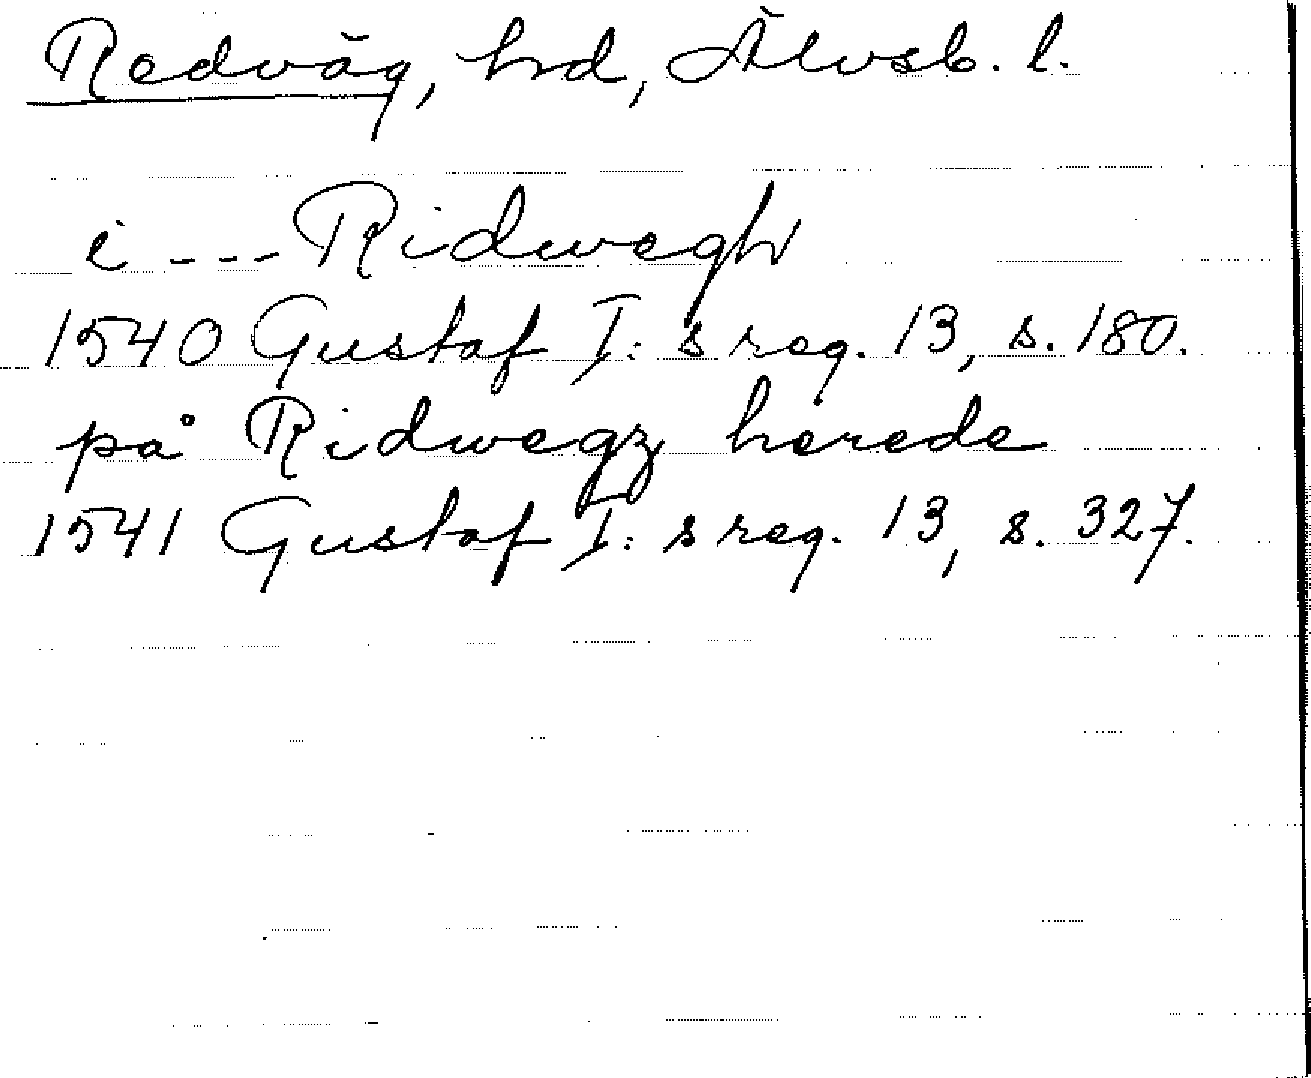 Redväg, hd, Älvsb. l.
i --- Ridwegh
1540 Gustaf I: s reg. 13, s. 180.
på Ridwegz herede
1541 Gustaf I: s reg. 13, s. 327.